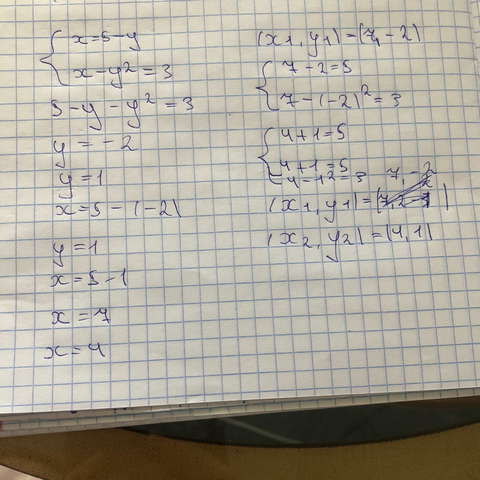 x=5-y
x-y²=3
5-y-y²=3
y=-2
y=1
x=5-(-2)
y=1
x=5-1
x=7
x=4
(x1, y1)=(7,-2)
7-2=5
7-(-2)²=3
4+1=5
4+1=5
4-1²=3 7,-2
(x1, y1)=( )
(x2, y2)=(4,1)